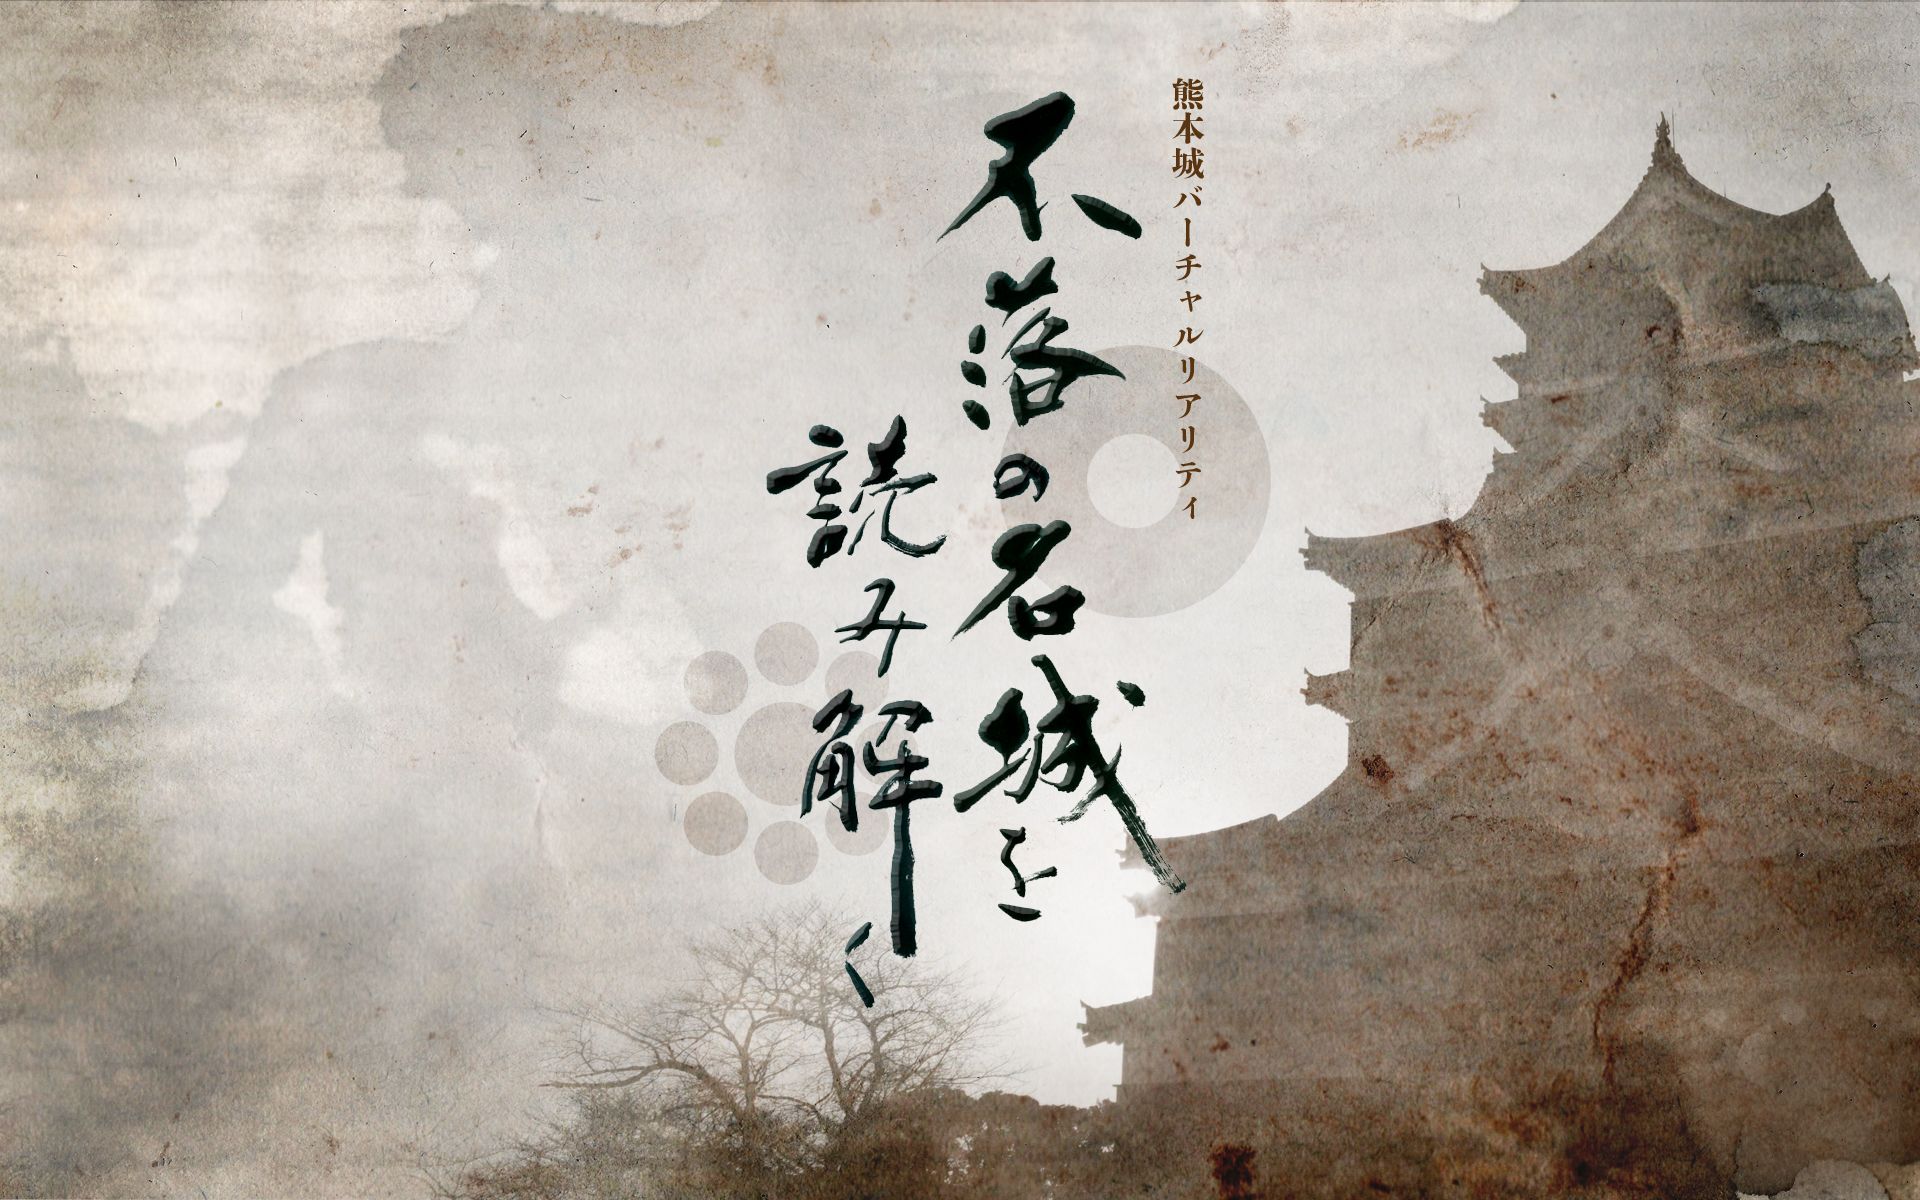 熊本城バーチャルリアリティ
不落の名城を
読み解く